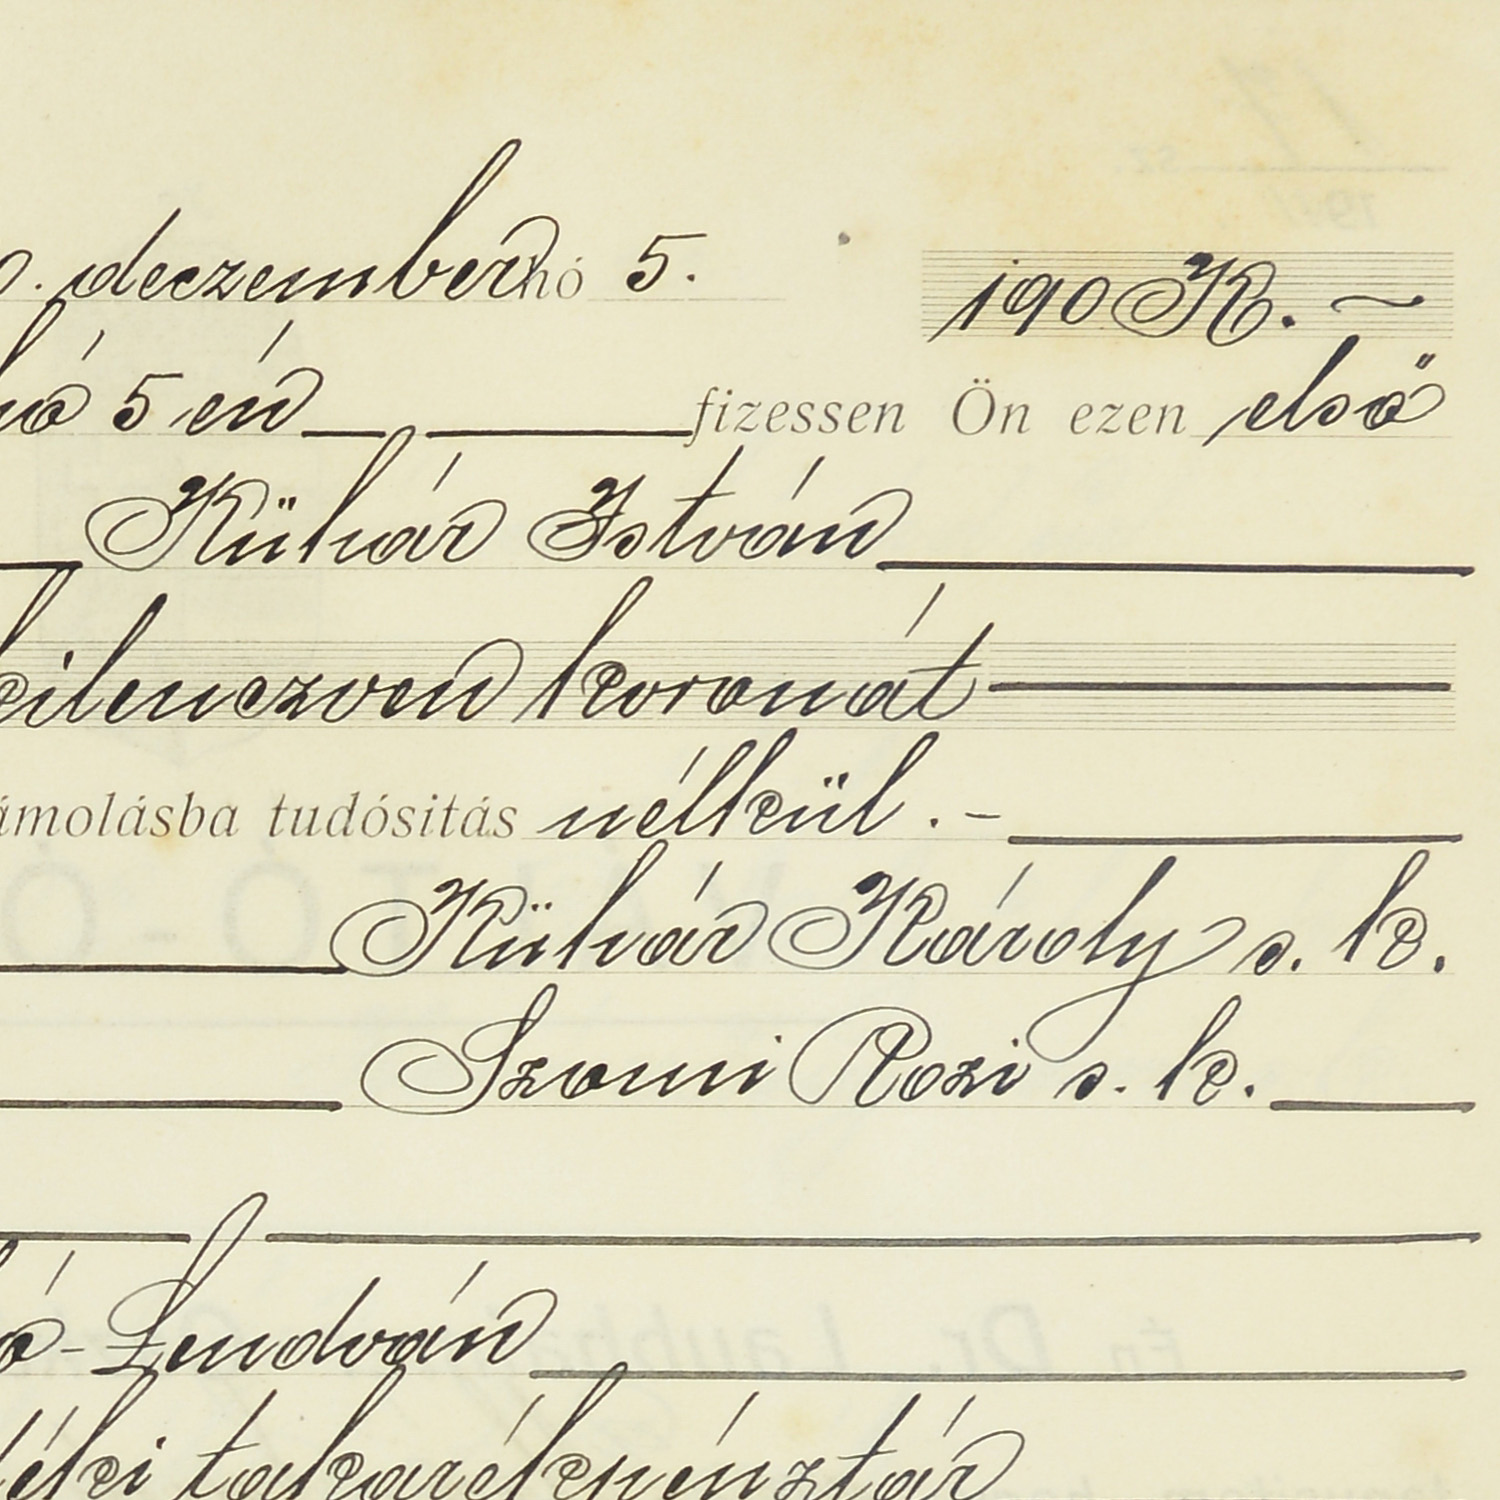 0. deczember hó 5. 190 K. ~
hó 5 én fizessen Ön ezen első
Kühár István
kilenczven koronát
ámolásba tudósítás nélkül . -
Kühár Károly s. k.
Szomi Rozi s. k.
ó-Lendván
déki takarékpénztár